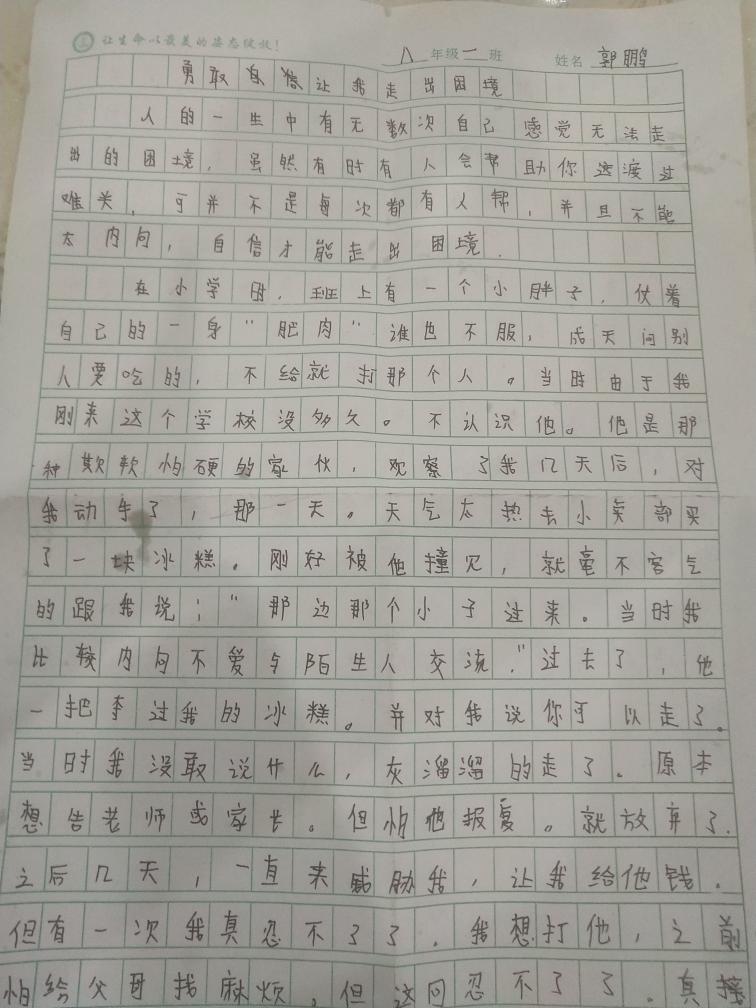 让生命以最美的姿态绽放！ 八年级二班 姓名 郭鹏
勇敢自信让我走出困境
人的一生中有无数次自己感觉无法走
出的困境，虽然有时有人会帮助你这渡过
难关，可并不是每次都有人帮，并且不能
太内向，自信才能走出困境．
在小学时，班上有一个小胖子，仗着
自己的一身“肥肉”谁也不服，成天问别
人要吃的，不给就打那个人。当时由于我
刚来这个学校没多久。不认识他。他是那
种欺软怕硬的家伙，观察了我几天后，对
我动手了，那一天。天气太热去小卖部买
了一块冰糕．刚好被他撞见，就毫不客气
的跟我说：“那边那个小子过来。当时我
比较内向不爱与陌生人交流．”过去了，他
一把拿过我的冰糕。并对我说你可以走了。
当时我没敢说什么，灰溜溜的走了．原本
想告老师或家长。但怕他报复。就放弃了．
之后几天，一直来威胁我，让我给他钱．
但有一次我真忍不了了．我想打他，之前
怕给父母找麻烦，但这回忍不了了．真